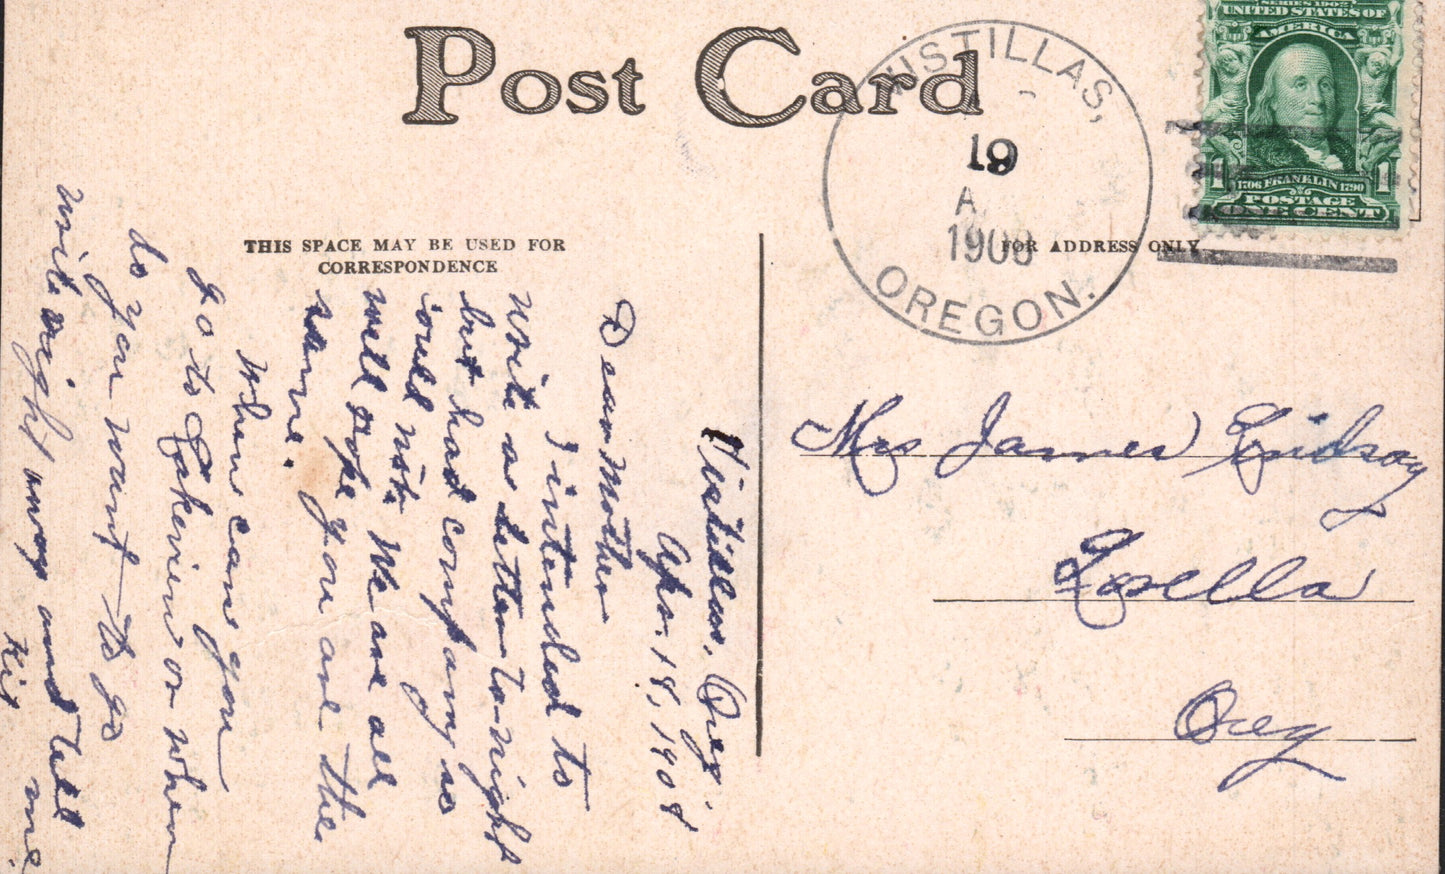 Post Card
WISTILLAS,
19
A.
1908
OREGON.
SERIES 1902
UNITED STATES OF
AMERICA
1 1706 FRANKLIN 1790 1
POSTAGE
ONE CENT
THIS SPACE MAY BE USED FOR
CORRESPONDENCE
FOR ADDRESS ONLY
Wistillas, Oreg.
Apr. 18, 1908
Dear Mother
I intended to
write a letter to-night
but had company so
could not. We are all
well hope you are the
same.
When can you
go to Lakeview or when
do you want to go
write right away and tell
me
Kit
Mrs James Lindsay
Losella
Oreg